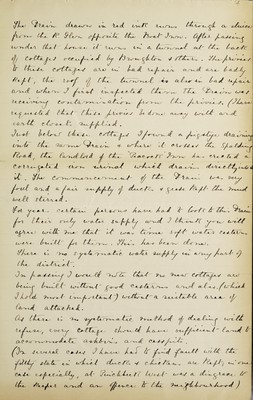 The Drain drawn in red ink runs through a sluice
from the R. Glen opposite the Boat Inn. After passing
under that house it runs in a tunnel at the back
of cottages occupied by Broughton & others. The privies
to these cottages are in bad repair and are badly
kept, the roof of the tunnel is also in bad repair
and when I first inspected them the Drain was
receiving contamination from the privies. (I have
requested that these privies be done away with and
earth closets supplied.
Just below these cottages I found a pigstye draining
into the same Drain & where it crosses the Spalding
Road, the landlord of the Inn has erected a
corrugated iron urinal which drains directly into
it. The commencement of the Drain was very
foul and a fair supply of ducks & geese kept the mud
well stirred.
For years certain persons have had to look to this Drain
for their only water supply and I think you will
agree with me that it was time soft water cisterns
were built for them. This has been done.
There is no systematic water supply in any part of
the district.
In passing I would note that no new cottages are
being built without good cisterns and also, (which
I hold most important) without a suitable area of
land attached.
As there is no systematic method of dealing with
refuse, every cottage should have sufficient land to
accommodate ashbins and cesspits.
(In several cases I have had to find fault with the
filthy state in which ducks & chickens are kept, in one
case especially, at West was a disgrace to
the keeper and an offence to the neighbourhood)